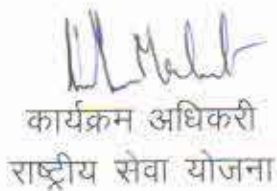 कार्यक्रम अधिकरी
राष्ट्रीय सेवा योजना